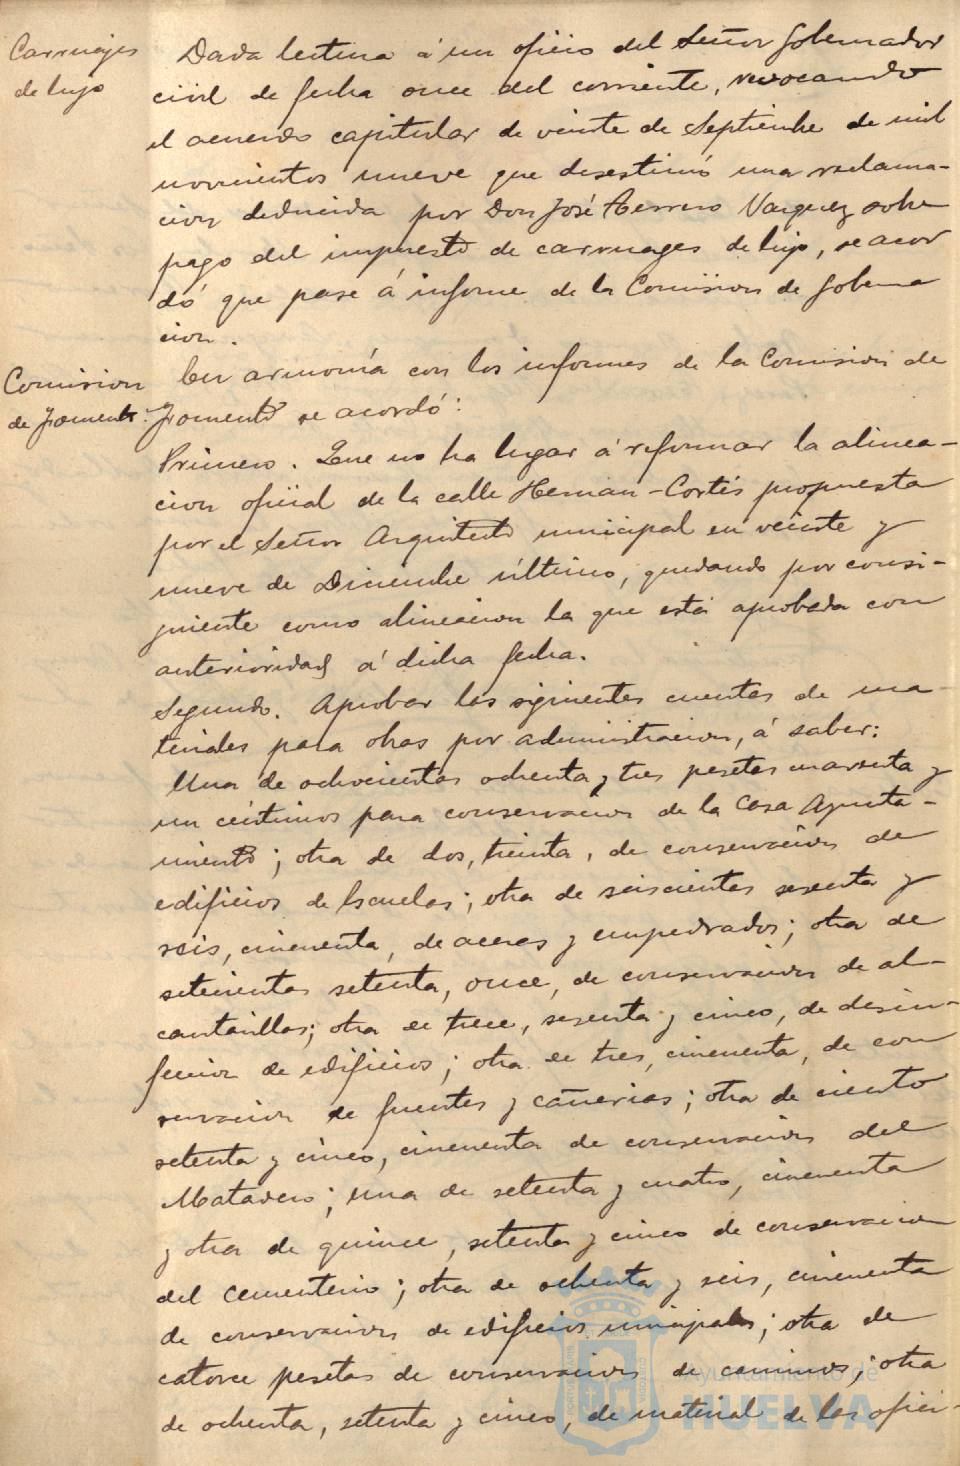 Carruajes
de lujo
Dada lectura á un oficio del Señor Gobernador
civil de fecha once del corriente, revocando
el acuerdo capitular de veinte de Septiembre de mil
novecientos nueve que desestimó una reclama-
cion deducida por Don José Terrero Vazquez sobre
pago del impuesto de carruages de lujo, se acor
dó que pase á informe de la Comision de Goberna
cion.
Comision
de Fomento.
En armonía con los informes de la Comision de
Fomento se acordó:
Primero. Que no ha lugar á reformar la alinea-
cion oficial de la calle Hernan-Cortés propuesta
por el Señor Arquitecto municipal en veinte y
nueve de Diciembre último, quedando por consi-
guiente como alineacion la que está aprobada con
anterioridad á dicha fecha.
Segundo. Aprobar las siguientes cuentas de ma
teriales para obras por administracion, á saber:
Una de ochocientas ochenta y tres pesetas cuarenta y
un céntimos para conservacion de la Casa Ayunta-
miento; otra de dos, treinta, de conservacion de
edificios de Escuelas; otra de seiscientas sesenta y
seis, cincuenta, de aceras y empedrados; otra de
setecientas setenta, once, de conservacion de al-
cantarillas; otra de trece, sesenta y cinco, de desin-
feccion de edificios; otra de tres, cincuenta, de con
servacion de fuentes y cañerias; otra de ciento
setenta y cinco, cincuenta de conservacion del
Matadero; una de setenta y cuatro, cincuenta
y otra de quince, setenta y cinco de conservacion
del cementerio; otra de ochenta y seis, cincuenta
de conservacion de edificios municipales; otra de
catorce pesetas de conservacion de caminos; otra
de ochenta, setenta y cinco, de material de las ofici-
Ayuntamiento de
HUELVA